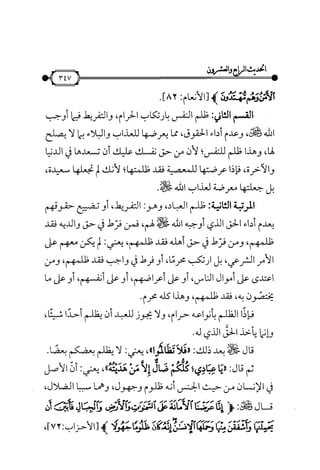 الحديث الرابع والعشرون
٣٤٧
ٱلۡأَمۡنُ وَهُم مُّهۡتَدُونَ ﴾ [الأنعام: ٨٢].
القسم الثاني: ظلم النفس بارتكاب الحرام، والتفريط فيما أوجب
الله ﷻ، وعدم أداء الحقوق، مما يعرضها للعذاب والبلاء بما لا يصلح
لها، وهذا ظلم للنفس؛ لأن من حق نفسك عليك أن تسعدها في الدنيا
والآخرة، فإذا عرضتها للمعصية فقد ظلمتها؛ لأنك لم تجعلها سعيدة،
بل جعلتها معرضة لعذاب الله ﷻ.
المرتبة الثانية: ظلم العباد، وهو: التفريط، أو تضييع حقوقهم
بعدم أداء الحق الذي أوجبه الله ﷻ لهم، فمن فرّط في حق والديه فقد
ظلمهم، ومن فرّط في حق أهله فقد ظلمهم، يعني: لم يكن معهم على
الأمر الشرعي، بل ارتكب محرمًا، أو فرط في واجب فقد ظلمهم، ومن
اعتدى على أموال الناس، أو على أعراضهم، أو على أنفسهم، أو على ما
يختصّون به، فقد ظلمهم، وهذا كله محرم.
فإذًا الظلم بأنواعه حرام، ولا يجوز للعبد أن يظلم أحدًا شيئًا،
وإنما يأخذ الحقَّ الذي له.
قال ﷺ بعد ذلك: «فَلَا تَظَالَمُوا»، يعني: لا يظلم بعضكم بعضًا.
ثم قال: «يَا عِبَادِي؛ كُلُّكُمْ ضَالٌّ إِلَّا مَنْ هَدَيْتُهُ»، يعني: أنّ الأصل
في الإنسان من حيث الجنس أنه ظلوم وجهول، وهما سببا الضلال،
قال ﷻ: ﴿ إِنَّا عَرَضۡنَا ٱلۡأَمَانَةَ عَلَى ٱلسَّمَٰوَٰتِ وَٱلۡأَرۡضِ وَٱلۡجِبَالِ فَأَبَيۡنَ أَن
يَحۡمِلۡنَهَا وَأَشۡفَقۡنَ مِنۡهَا وَحَمَلَهَا ٱلۡإِنسَٰنُ إِنَّهُۥ كَانَ ظَلُومٗا جَهُولٗا ﴾ [الأحزاب: ٧٢]،